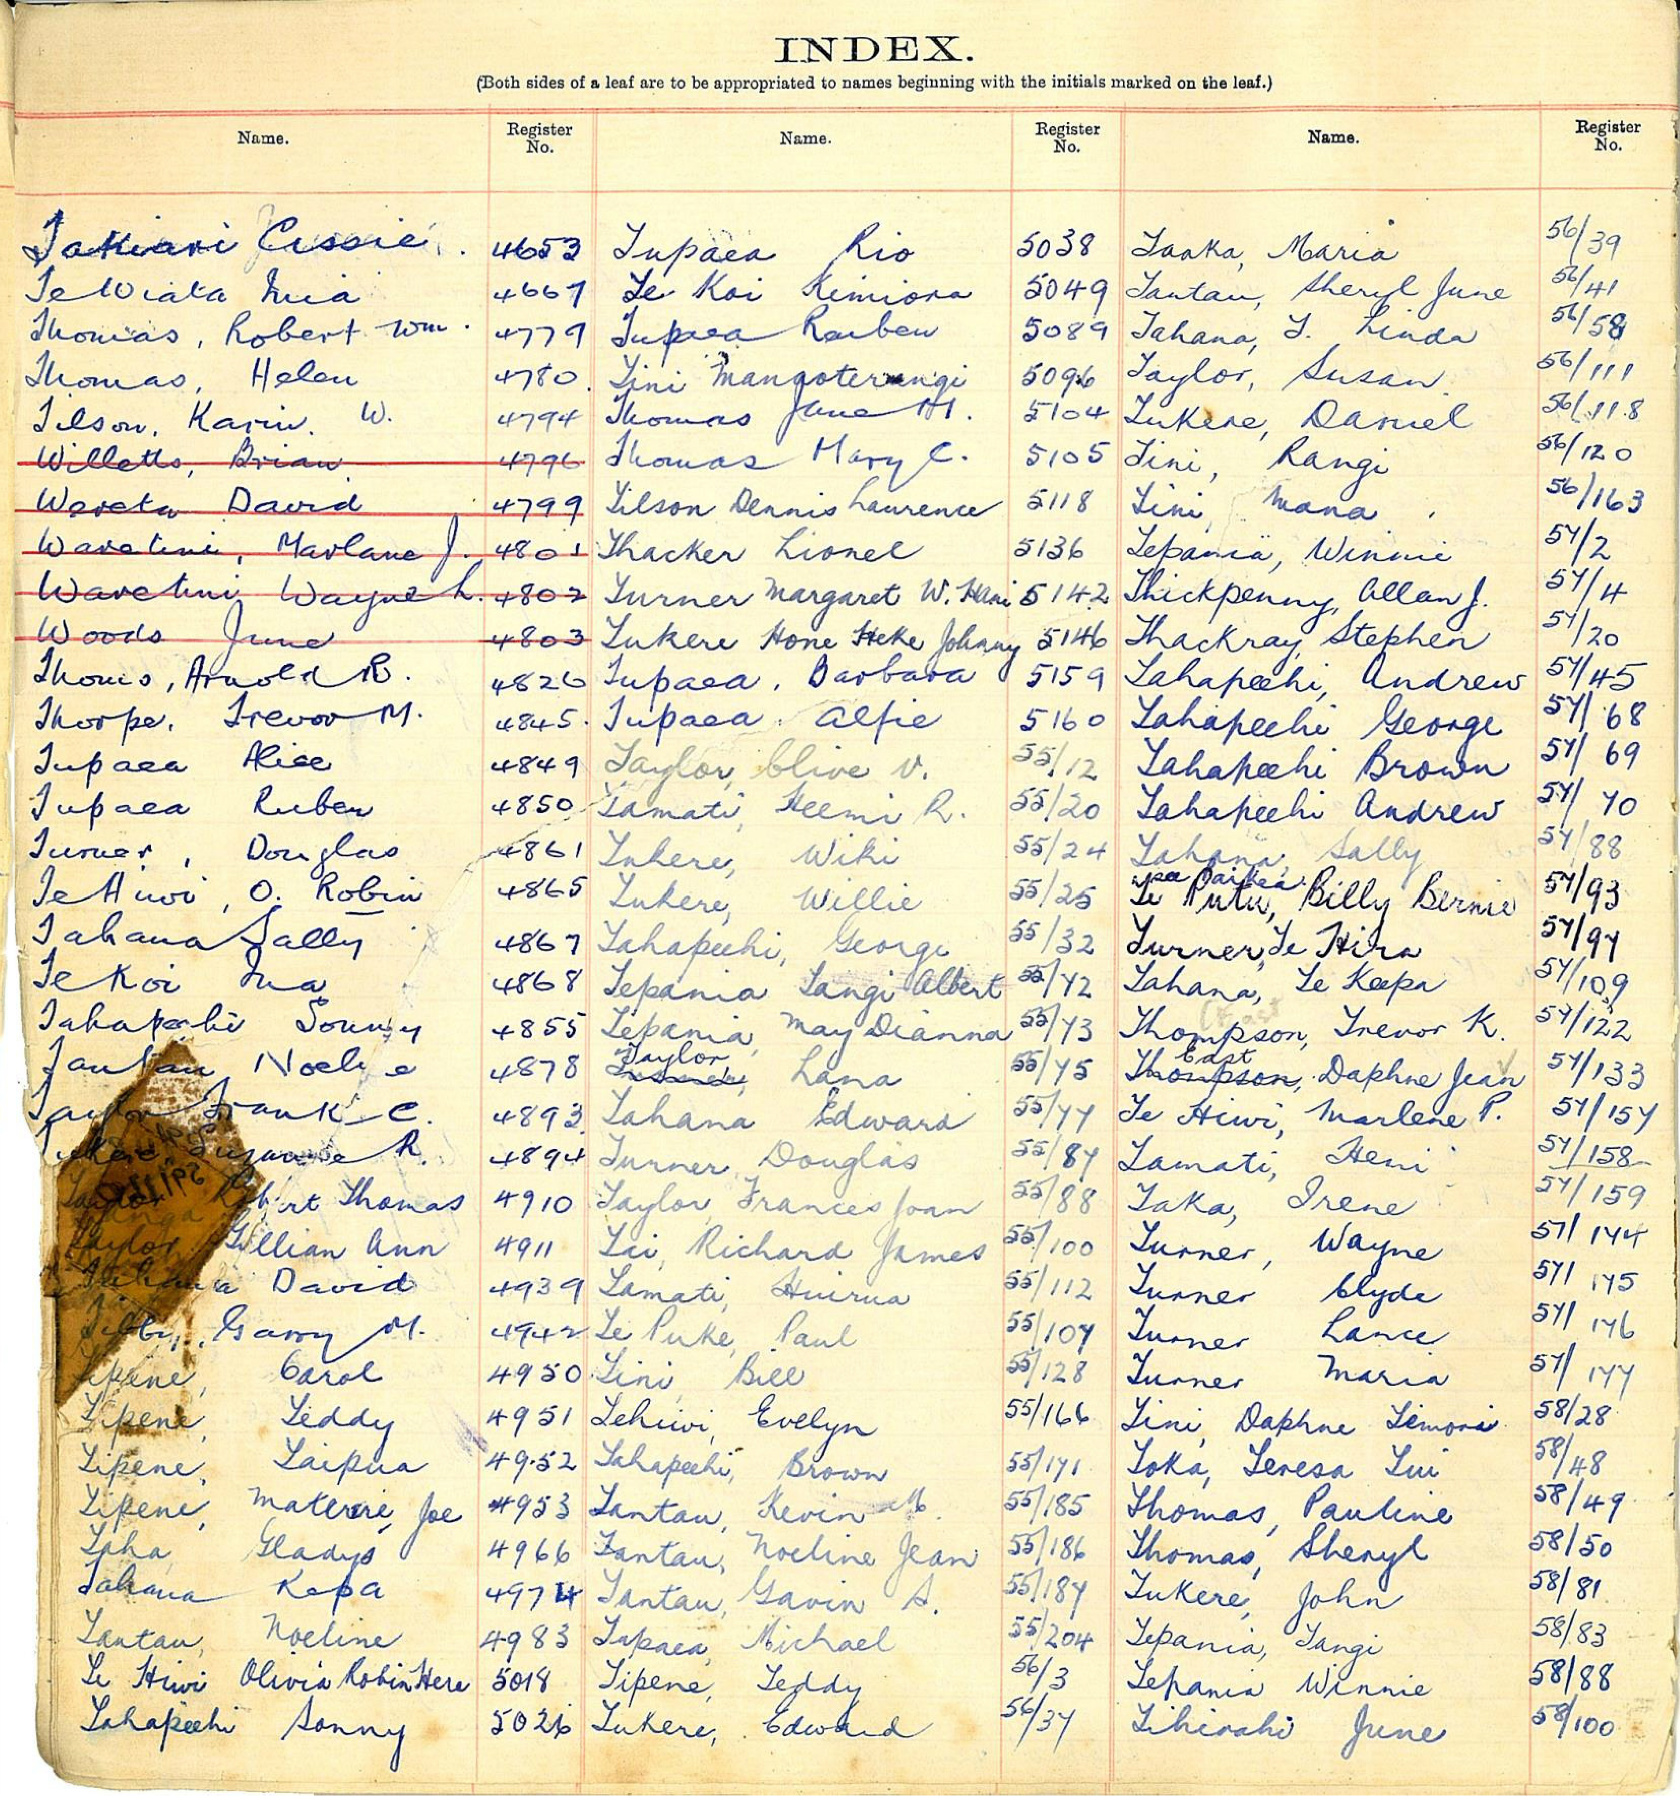 INDEX.
(Both sides of a leaf are to be appropriated to names beginning with the initials marked on the leaf.)
Name. Register No. Name. Register No. Name. Register No.
Takiari Cissie 4653
Te Wiata Mia 4667
Thomas, Robert Wm. 4779
Thomas, Helen 4780
Tilson, Karin W. 4794
Willetts, Brian 4796
Wereta David 4799
Waretini, Marlane J. 4801
Waretini Wayne L. 4802
Woods June 4803
Thoms, Arnold R. 4826
Thorpe, Trevor M. 4845
Tupaea Alice 4849
Tupaea Ruben 4850
Turner, Douglas 4861
Te Hiwi, O. Robin 4865
Tahana Sally 4867
Te Koi 4868
Tahapeehi Sonny 4855
Tautau Noeline 4878
Taylor Frank C. 4893
Tukere, Suzanne R. 4894
Taylor Robert Thomas 4910
Taylor Gillian Ann 4911
Tahana David 4939
Garry M. 4942
Tipene, Carol 4950
Tipene, Teddy 4951
Tipene, Taipua 4952
Tipene, Joe 4953
Taha Gladys 4966
Tahana Kepa 4974
Tautau, Noeline 4983
Te Hiwi Olivia Robin Here 5018
Tahapeehi Sonny 5026
Tupaea Rio 5038
Te Koi Kimiora 5049
Tupaea Reuben 5089
Tini Mangoterangi 5096
Thomas Jane M. 5104
Thomas Mary C. 5105
Tilson Dennis Laurence 5118
Thacker Lionel 5136
Turner Margaret W. Hani 5142
Tukere Hone Heke Johnny 5146
Tupaea, Barbara 5159
Tupaea Alfie 5160
Taylor, Clive V. 55/12
Tamati, Heemi R. 55/20
Tukere, Wiki 55/24
Tukere, Willie 55/25
Tahapeehi, George 55/32
Tepania Tangi Albert 55/72
Tepania, May Dianna 55/73
Taylor
Lana 55/75
Tahana Edward 55/77
Turner, Douglas 55/87
Taylor, Frances Joan 55/88
Tai, Richard James 55/100
Tamati, Huirua 55/112
Te Puke, Paul 55/107
Tini, Bill 55/128
Tehiwi, Evelyn 55/166
Tahapeehi, Brown 55/171
Tautau, Kevin M. 55/185
Tautau, Noeline Jean 55/186
Tautau, Gavin A. 55/187
Tupaea, Michael 55/204
Tipene, Teddy 56/3
Tukere, Edward 56/37
Taaka, Maria 56/39
Tautau, Sheryl June 56/41
Tahana, T. Linda 56/58
Taylor, Susan 56/111
Tukere, Daniel 56/118
Tini, Rangi 56/120
Tini, Mana 56/163
Tepania, Winnie 57/2
Thickpenny, Allan J. 57/4
Thackray, Stephen 57/20
Tahapeehi, Andrew 57/45
Tahapeehi George 57/68
Tahapeehi Brown 57/69
Tahapeehi Andrew 57/70
Tahana, Sally 57/88
see Paikea
Te Putu, Billy Bernie 57/93
Turner, Te Hira 57/97
Tahana, Te Keepa 57/109
(East
Thompson, Trevor K. 57/122
East
Thompson, Daphne Jean 57/133
Te Hiwi, Marlene P. 57/157
Tamati, Hemi 57/158
Taka, Irene 57/159
Turner, Wayne 57/174
Turner Clyde 57/175
Turner Lance 57/176
Turner Maria 57/177
Tini, Daphne Temoni 58/28
Toka, Teresa Tui 58/48
Thomas, Pauline 58/49
Thomas, Sheryl 58/50
Tukere, John 58/81
Tepania, Tangi 58/83
Tepania Winnie 58/88
Tihirahi June 58/100